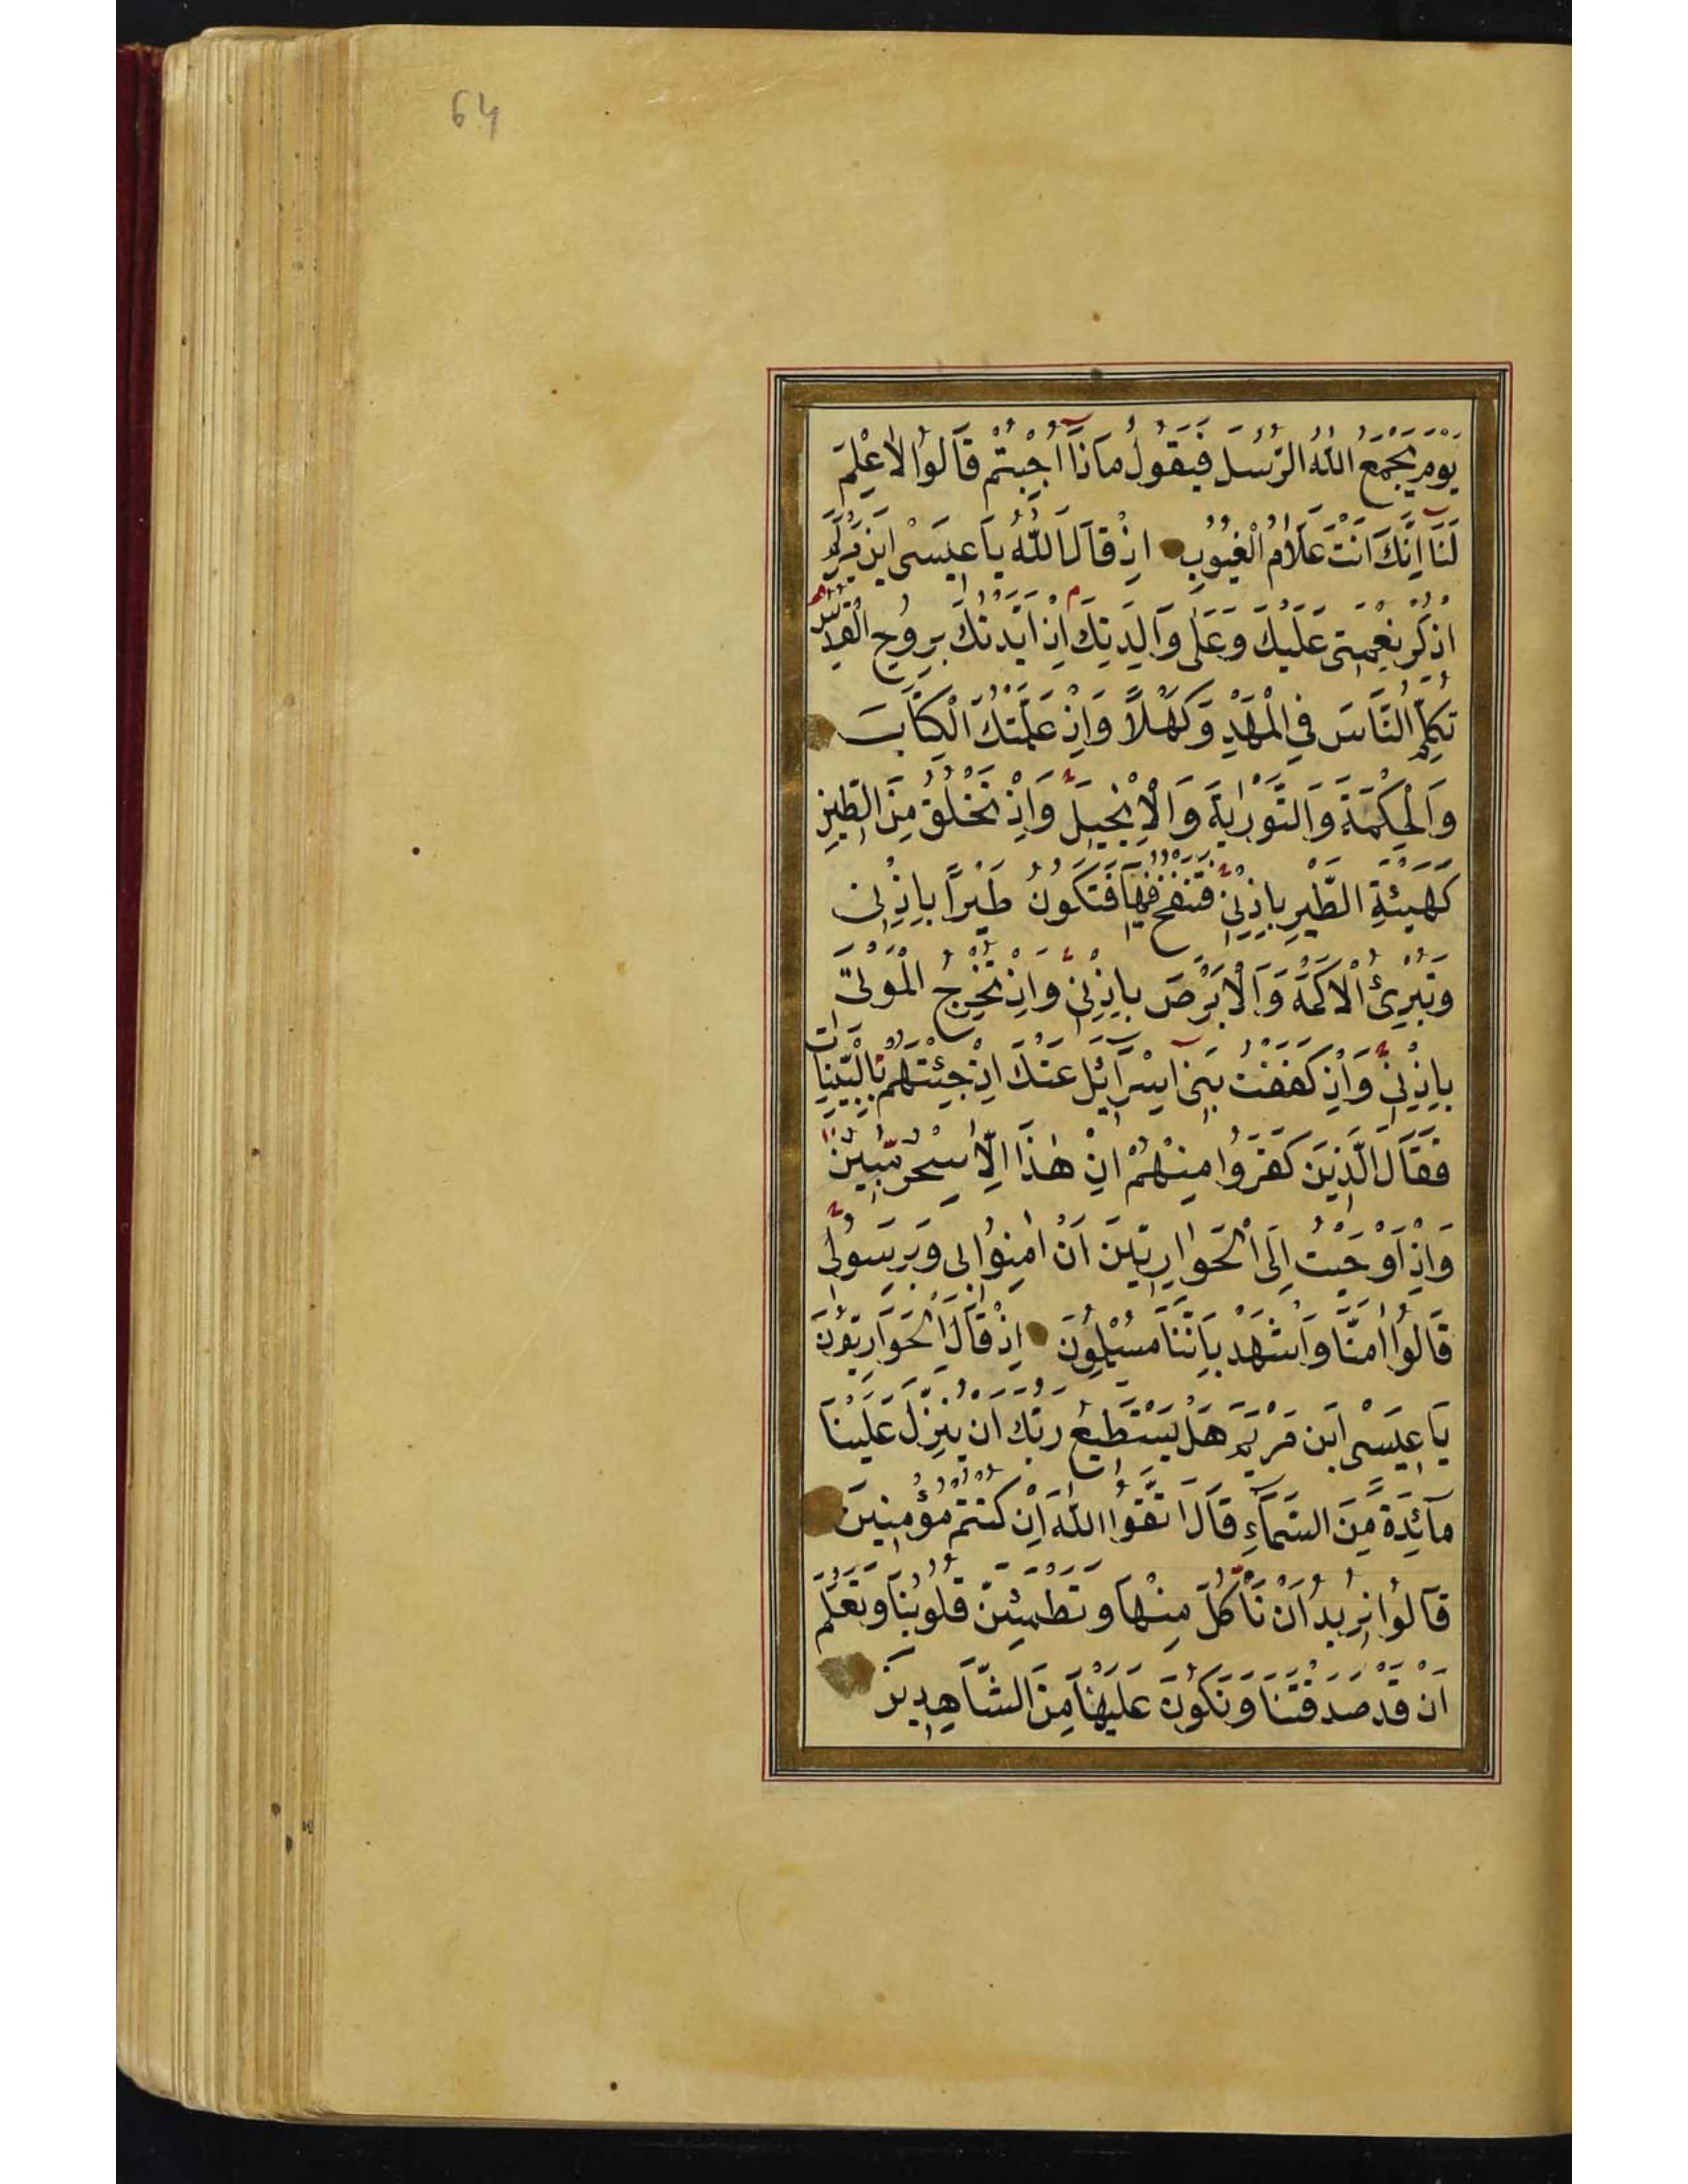 64
يَوْمَ يَجْمَعُ اللّٰهُ الرُّسُلَ فَيَقُولُ مَاذَٓا اُجِبْتُمْ قَالُوا لَا عِلْمَ
لَنَٓا اِنَّكَ اَنْتَ عَلَّامُ الْغُيُوبِ اِذْ قَالَ اللّٰهُ يَا عِيسَى ابْنَ مَرْيَمَ
اذْكُرْ نِعْمَتِى عَلَيْكَ وَعَلٰى وَالِدَتِكَ اِذْ اَيَّدْتُكَ بِرُوحِ الْقُدُسِ
تُكَلِّمُ النَّاسَ فِى الْمَهْدِ وَكَهْلًا وَاِذْ عَلَّمْتُكَ الْكِتَابَ
وَالْحِكْمَةَ وَالتَّوْرٰيةَ وَالْاِنْجِيلَ وَاِذْ تَخْلُقُ مِنَ الطِّينِ
كَهَيْئَةِ الطَّيْرِ بِاِذْنِى فَتَنْفُخُ فِيهَا فَتَكُونُ طَيْرًا بِاِذْنِى
وَتُبْرِئُ الْاَكْمَهَ وَالْاَبْرَصَ بِاِذْنِى وَاِذْ تُخْرِجُ الْمَوْتٰى
بِاِذْنِى وَاِذْ كَفَفْتُ بَنِٓى اِسْرَٓائِلَ عَنْكَ اِذْ جِئْتَهُمْ بِالْبَيِّنَاتِ
فَقَالَ الَّذِينَ كَفَرُوا مِنْهُمْ اِنْ هٰذَٓا اِلَّا سِحْرٌ مُبِينٌ
وَاِذْ اَوْحَيْتُ اِلَى الْحَوَارِيِّينَ اَنْ اٰمِنُوا بِى وَبِرَسُولِى
قَالُوا اٰمَنَّا وَاشْهَدْ بِاَنَّنَا مُسْلِمُونَ اِذْ قَالَ الْحَوَارِيُّونَ
يَا عِيسَى ابْنَ مَرْيَمَ هَلْ يَسْتَطِيعُ رَبُّكَ اَنْ يُنَزِّلَ عَلَيْنَا
مَٓائِدَةً مِنَ السَّمَٓاءِ قَالَ اتَّقُوا اللّٰهَ اِنْ كُنْتُمْ مُؤْمِنِينَ
قَالُوا نُرِيدُ اَنْ نَأْكُلَ مِنْهَا وَتَطْمَئِنَّ قُلُوبُنَا وَنَعْلَمَ
اَنْ قَدْ صَدَقْتَنَا وَنَكُونَ عَلَيْهَا مِنَ الشَّاهِدِينَ